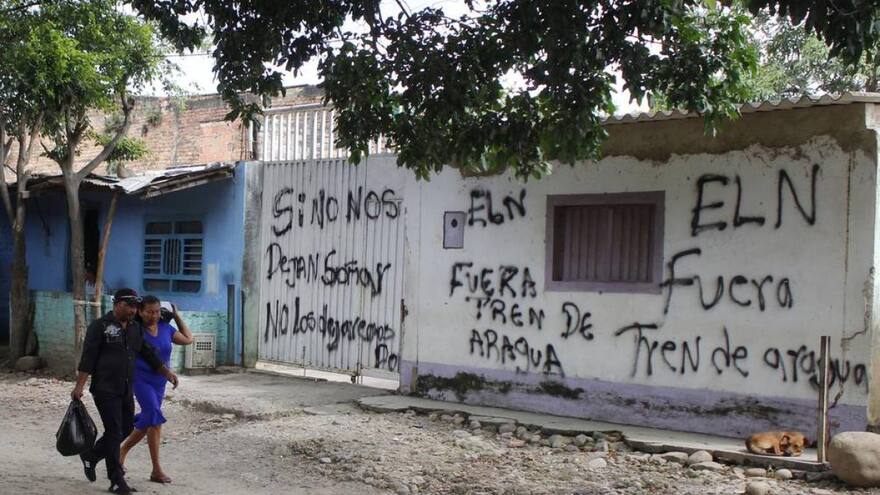 Si NO NOS
DeJAN SoñAr
No Los dejaremos
Do
ELN
FUERA
TREN DE
ARAgUA
ELN
Fuera
Tren de aragua